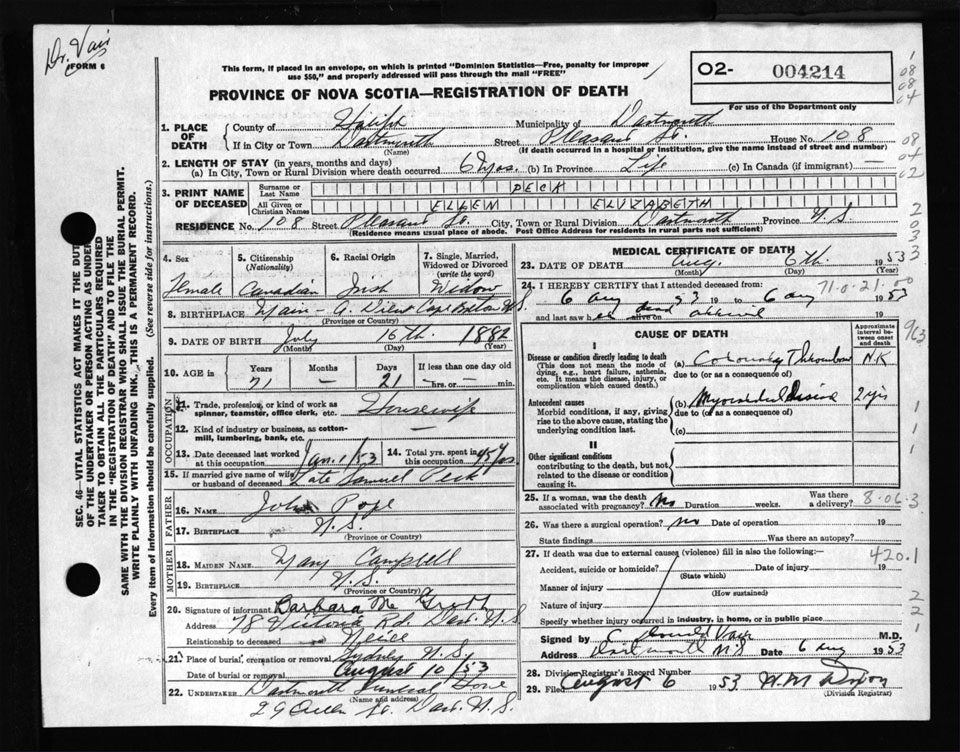 Dr. Vair
FORM 6
This form, if placed in an envelope, on which is printed "Dominion Statistics—Free, penalty for improper
use $50," and properly addressed will pass through the mail "FREE"
02- 004214
For use of the Department only
PROVINCE OF NOVA SCOTIA—REGISTRATION OF DEATH
1. PLACE OF DEATH County of Halifax Municipality of Dartmouth
If in City or Town Dartmouth Street Pleasant St. House No. 108
(Name) (If death occurred in a hospital or institution, give the name instead of street and number)
2. LENGTH OF STAY (in years, months and days)
(a) In City, Town or Rural Division where death occurred (b) In Province Life (c) In Canada (if immigrant) —
3. PRINT NAME OF DECEASED Surname or Last Name PECK
All Given or Christian Names ELLEN ELIZABETH
RESIDENCE No. 108 Street Pleasant St. City, Town or Rural Division Dartmouth Province N.S.
(Residence means usual place of abode. Post Office Address for residents in rural parts not sufficient)
4. Sex Female
5. Citizenship (Nationality) Canadian
6. Racial Origin Irish
7. Single, Married, Widowed or Divorced (write the word) Widow
8. BIRTHPLACE Main-a-Dieu Cape Breton N.S.
(Province or Country)
9. DATE OF BIRTH July 16th. 1882
(Month) (Day) (Year)
10. AGE in Years 71 Months — Days 21 If less than one day old — hrs. or — min.
OCCUPATION
11. Trade, profession, or kind of work as spinner, teamster, office clerk, etc. Housewife
12. Kind of industry or business, as cotton-mill, lumbering, bank, etc.
13. Date deceased last worked at this occupation Jan. 1/53
14. Total yrs. spent in this occupation 45 yrs
15. If married give name of wife or husband of deceased Late Samuel Peck
FATHER
16. NAME John Pope
17. BIRTHPLACE N.S.
(Province or Country)
MOTHER
18. MAIDEN NAME Mary Campbell
19. BIRTHPLACE N.S.
(Province or Country)
20. Signature of informant Barbara
Address 78 Victoria Rd. Dart. N.S.
Relationship to deceased Niece
21. Place of burial, cremation or removal Sydney N.S.
Date of burial or removal August 10/53
22. UNDERTAKER Dartmouth Funeral Home
(Name and address)
29 Queen St. Dart. N.S.
MEDICAL CERTIFICATE OF DEATH
23. DATE OF DEATH Aug. 6th. 1953
(Month) (Day) (Year)
24. I HEREBY CERTIFY that I attended deceased from:
6 Aug 53 19 to 6 aug 1953
71-0-21-00
and last saw her dead alive on
CAUSE OF DEATH
Approximate interval between onset and death
I
Disease or condition directly leading to death
(This does not mean the mode of dying, e.g., heart failure, asthenia, etc. It means the disease, injury, or complication which caused death.)
(a) Coronary Thrombosis N.K
due to (or as a consequence of)
Antecedent causes
Morbid conditions, if any, giving rise to the above cause, stating the underlying condition last.
(b) Myocardial disease 2 yrs
due to (or as a consequence of)
(c)
II
Other significant conditions
contributing to the death, but not related to the disease or condition causing it.
25. If a woman, was the death associated with pregnancy? No Duration weeks Was there a delivery?
8-06-3
26. Was there a surgical operation? no Date of operation 19
State findings Was there an autopsy?
27. If death was due to external causes (violence) fill in also the following:—
420.1
Accident, suicide or homicide? Date of injury 19
(State which)
Manner of injury
(How sustained)
Nature of injury
Specify whether injury occurred in industry, in home, or in public place
Signed by C Donald Vair M.D.
Address Dartmouth N.S Date 6 Aug 1953
28. Division Registrar's Record Number
29. Filed August 6 1953
(Division Registrar)
SEC. 46—VITAL STATISTICS ACT MAKES IT THE DUTY
OF THE UNDERTAKER OR PERSON ACTING AS UNDER-
TAKER TO OBTAIN ALL THE PARTICULARS REQUIRED
IN THE "REGISTRATION OF DEATH" AND TO FILE THE
SAME WITH THE DIVISION REGISTRAR WHO SHALL ISSUE THE BURIAL PERMIT.
WRITE PLAINLY WITH UNFADING INK. THIS IS A PERMANENT RECORD.
Every item of information should be carefully supplied. (See reverse side for instructions.)